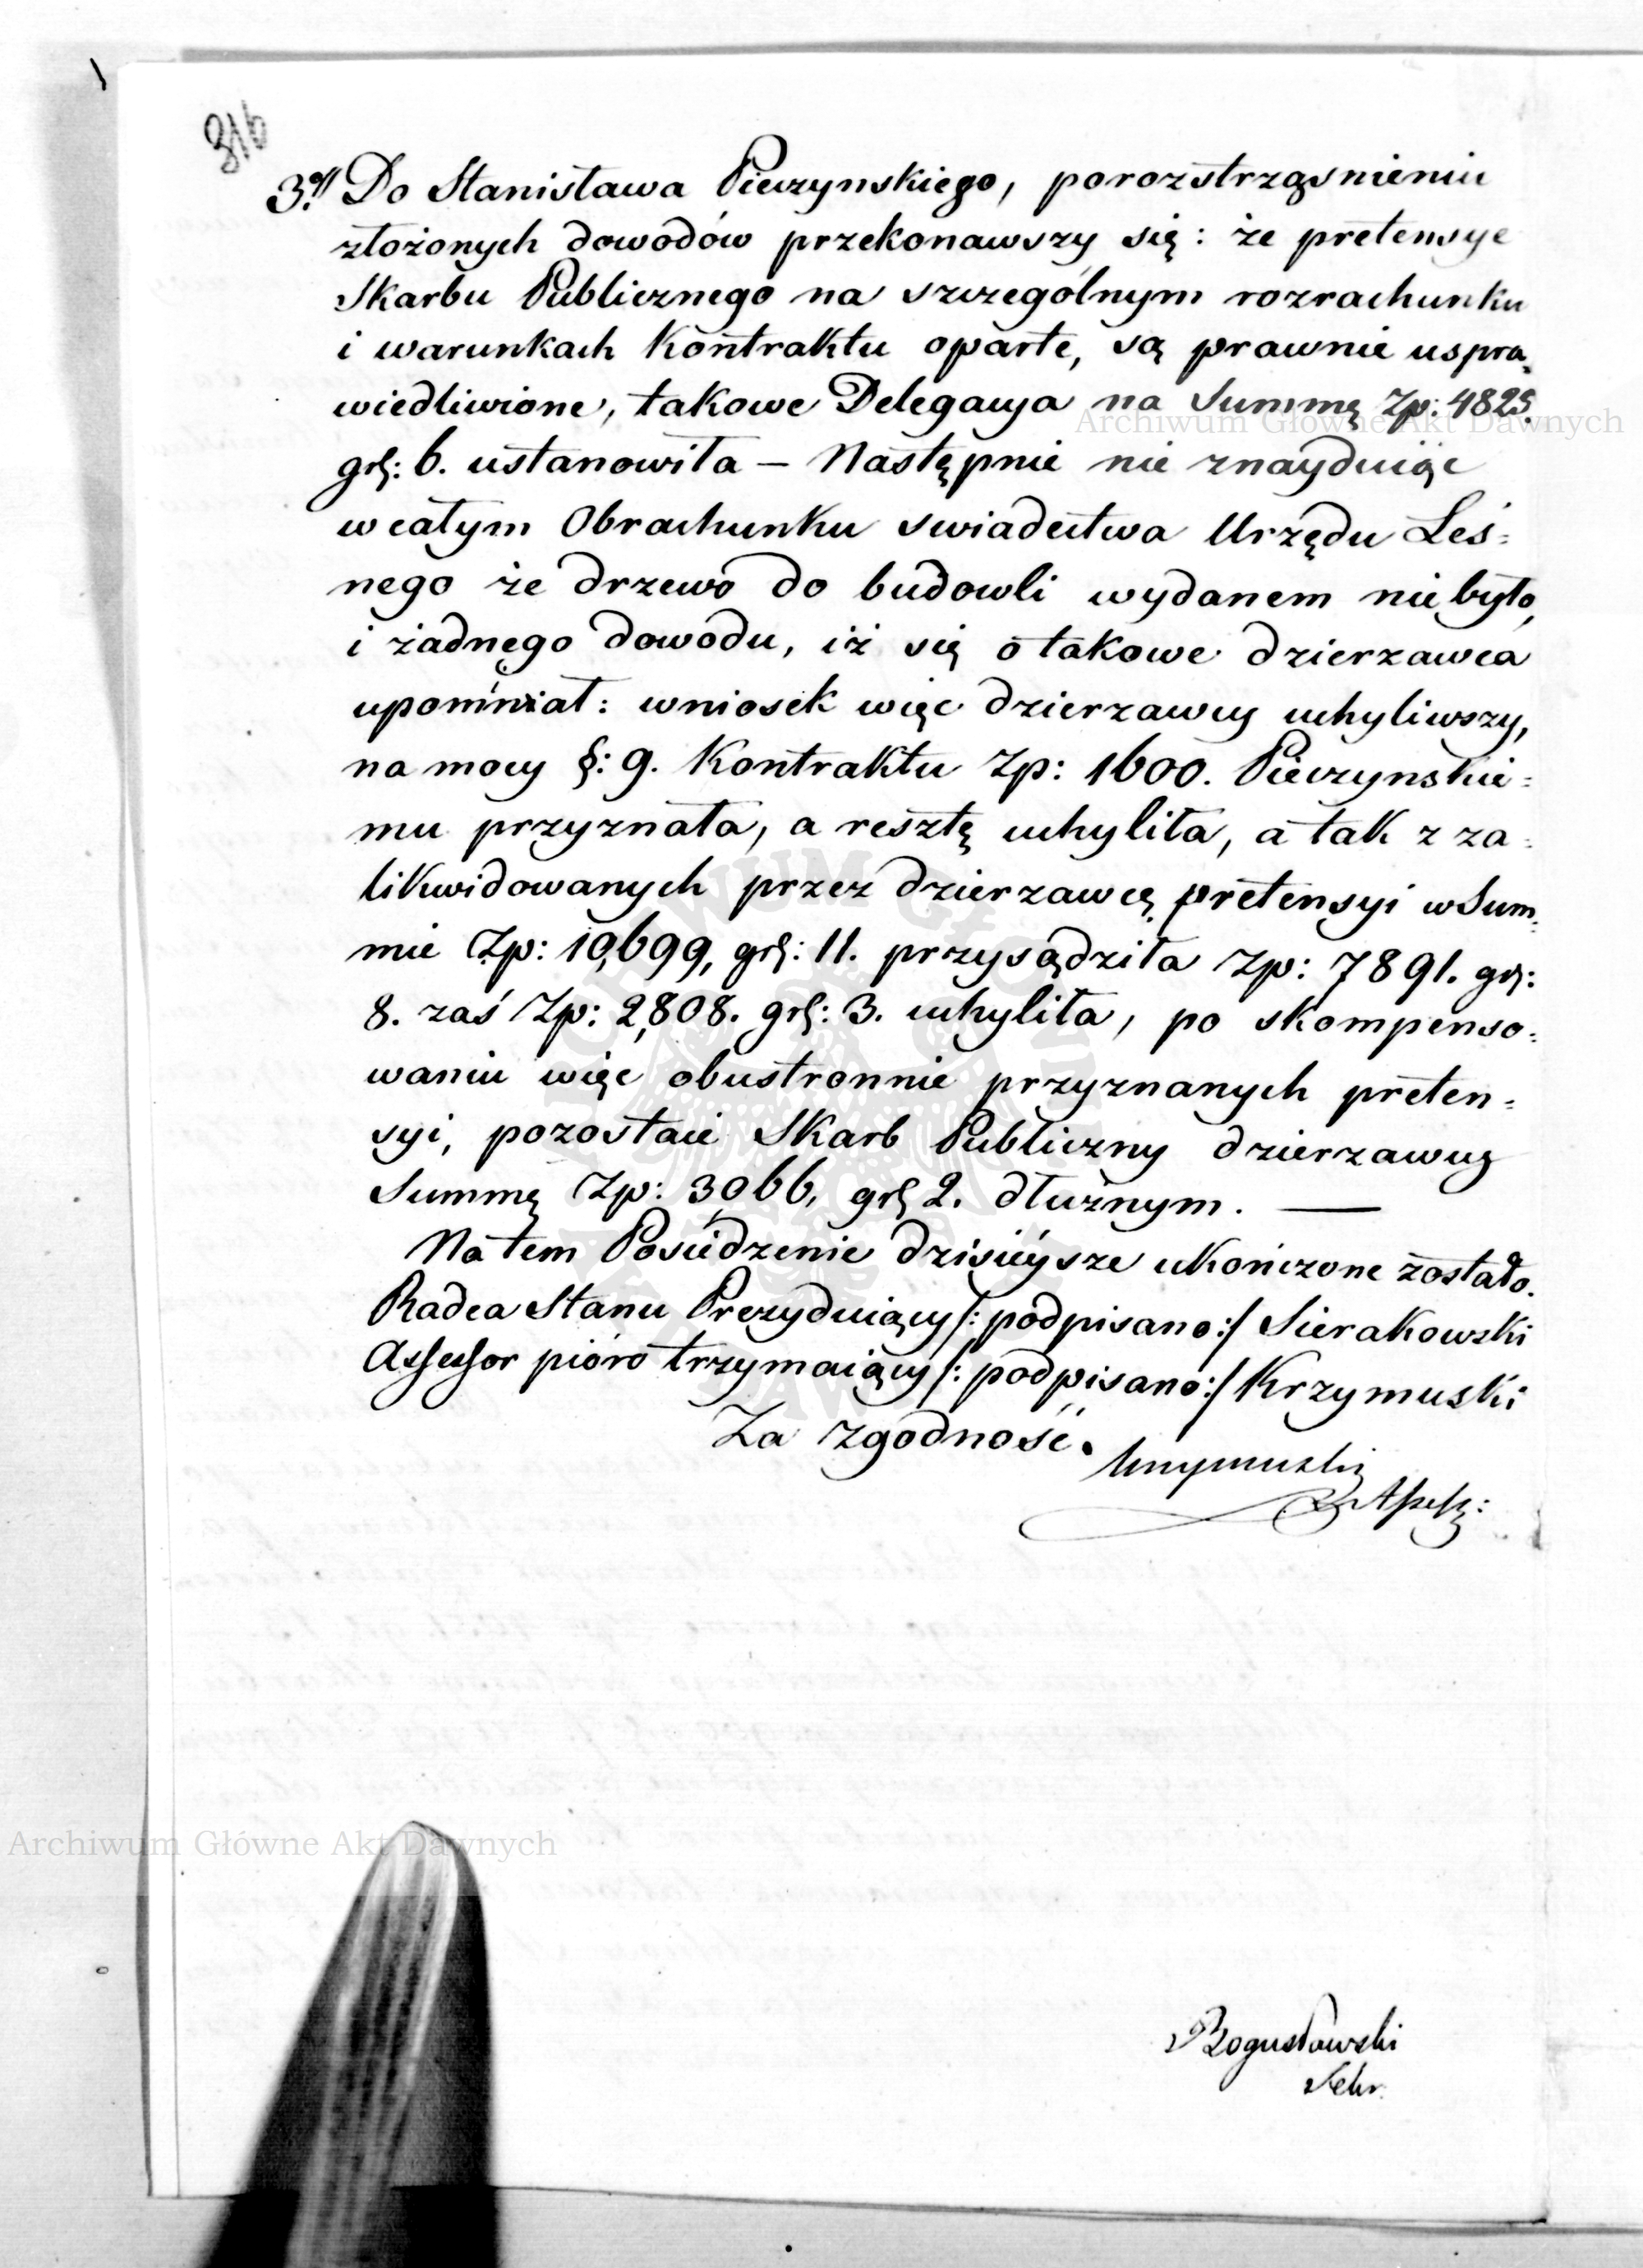 816
3º// Do Stanisława Pieczynskiego, po rozstrząsnieniu
złożonych dowodów przekonawszy się: że pretensye
Skarbu Publicznego na szczególnym rozrachunku
i warunkach Kontraktu oparte, są prawnie uspra„
wiedliwione, takowe Delegacya na Summę Zp: 4825.
gr: 6. ustanowiła – Następnie nie znayduiąc
w całym Obrachunku swiadectwa Urzędu Leś=
nego że drzewo do budowli wydanem nie było,
i żadnego dowodu, iż się o takowe dzierzawca
upominał: wniosek więc dzierzawcy uchyliwszy,
na mocy §: 9. Kontraktu Zp: 1600. Pieczynskie=
mu przyznała, a resztę uchyliła, a tak z za=
likwidowanych przez dzierzawcę pretensyi w Sum„
mie Zp: 10,699, gr: 11. przysądziła Zp: 7891. gr:
8. zaś Zp: 2,808. gr: 3. uchyliła, po skompenso=
waniu więc obustronnie przyznanych preten=
syi, pozostaie Skarb Publiczny dzierzawcy
Summę Zp: 3,066, gr 2. dłużnym. —
Na tem Posiedzenie dzisieysze ukończone zostało.
Radca Stanu Prezyduiący /: podpisano :/ Sierakowski
Assessor pióro trzymaiący /: podpisano :/ Krzymuski
Za zgodność.
Krzymuski
Assess:
Bogusławski
Sekr.
Archiwum Główne Akt Dawnych
Archiwum Główne Akt Dawnych